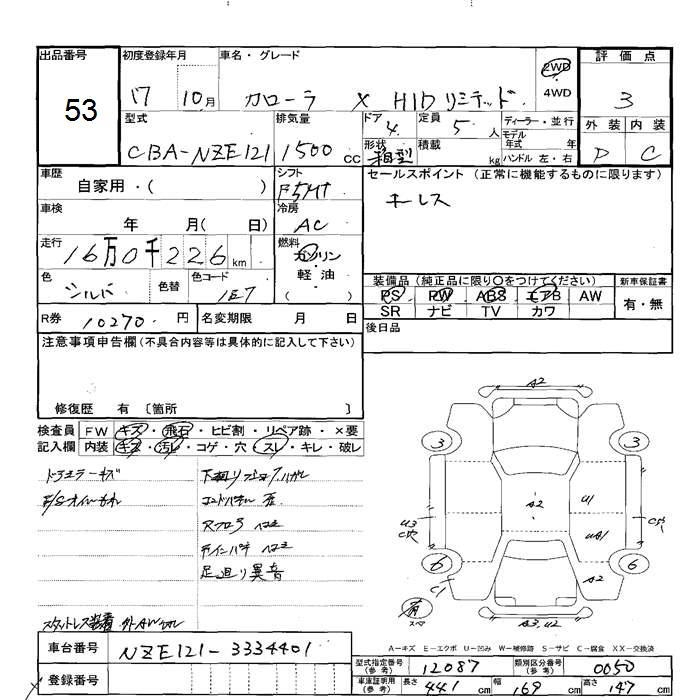 出品番号 初度登録年月 車名・グレード 2WD 4WD 評価点
53 17 10月 カローラ X HIDリミテッド 3
型式 排気量 ドア 4 定員 5 人 ディーラー・並行 外装 内装
CBA-NZE121 1500 CC 形状 箱型 積載 kg モデル年式 年 ハンドル 左・右 D C
車歴 自家用・( ) シフト F5MT セールスポイント (正常に機能するものに限ります)
車検 年 月( 日) 冷房 AC キーレス
走行 16万0千226km 燃料 ガソリン・軽油 ( )
色 シルバ 色替 色コード 1E7 装備品(純正品に限り〇をつけてください) 新車保証書
PS PW ABS エアB AW 有・無
SR ナビ TV カワ
R券 10270円 名変期限 月 日 後日品
注意事項申告欄(不具合内容等は具体的に記入して下さい)
修復歴 有 〔箇所 〕
検査員 FW キズ・飛石・ヒビ割・リペア跡・×要
記入欄 内装 キズ・汚レ・コゲ・穴・スレ・キレ・破レ
足廻り異音
A2
3 3
A2 U1
U3 UA1
6 6
C1 A2
有
A3.U2
A-キズ E-エクボ U-凹み W-補修跡 S-サビ C-腐食 XX-交換済
車台番号 NZE121-3334401
型式指定番号(参考) 12087 類別区分番号(参考) 0050
登録番号 車庫証明用(参考) 長さ 441 cm 幅 169 cm 高さ 147 cm